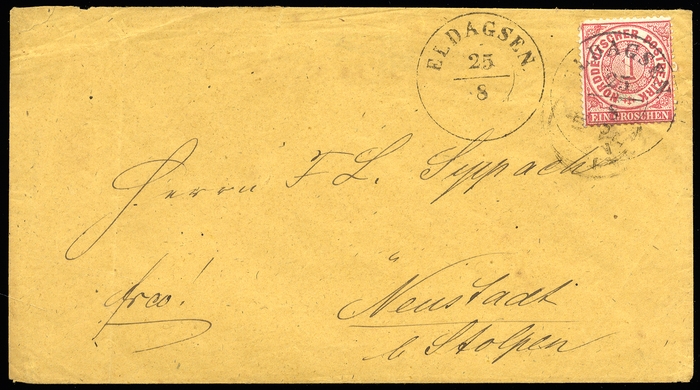 ELDAGSEN.
25
8
NORDDEUTSCHER POSTBEZIRK
1
EIN GROSCHEN
Herrn F. L. Syppach
frco!
in
Neustadt
b Stolpen